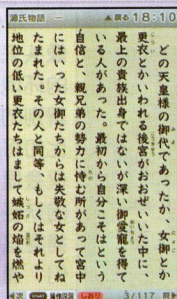 源氏物語 一
▲戻る 18:10
どの天皇様の御代であったか、女御とか
更衣とかいわれる後宮がおおぜいいた中に、
最上の貴族出身ではないが深い御愛寵を得て
いる人があった。最初から自分こそはという
自信と、親兄弟の勢力に恃む所があって宮中
にはいった女御たちからは失敬な女としてね
たまれた。その人と同等、もしくはそれより
地位の低い更衣たちはまして嫉妬の焔を燃や
START 操作説明 しおり 3/117